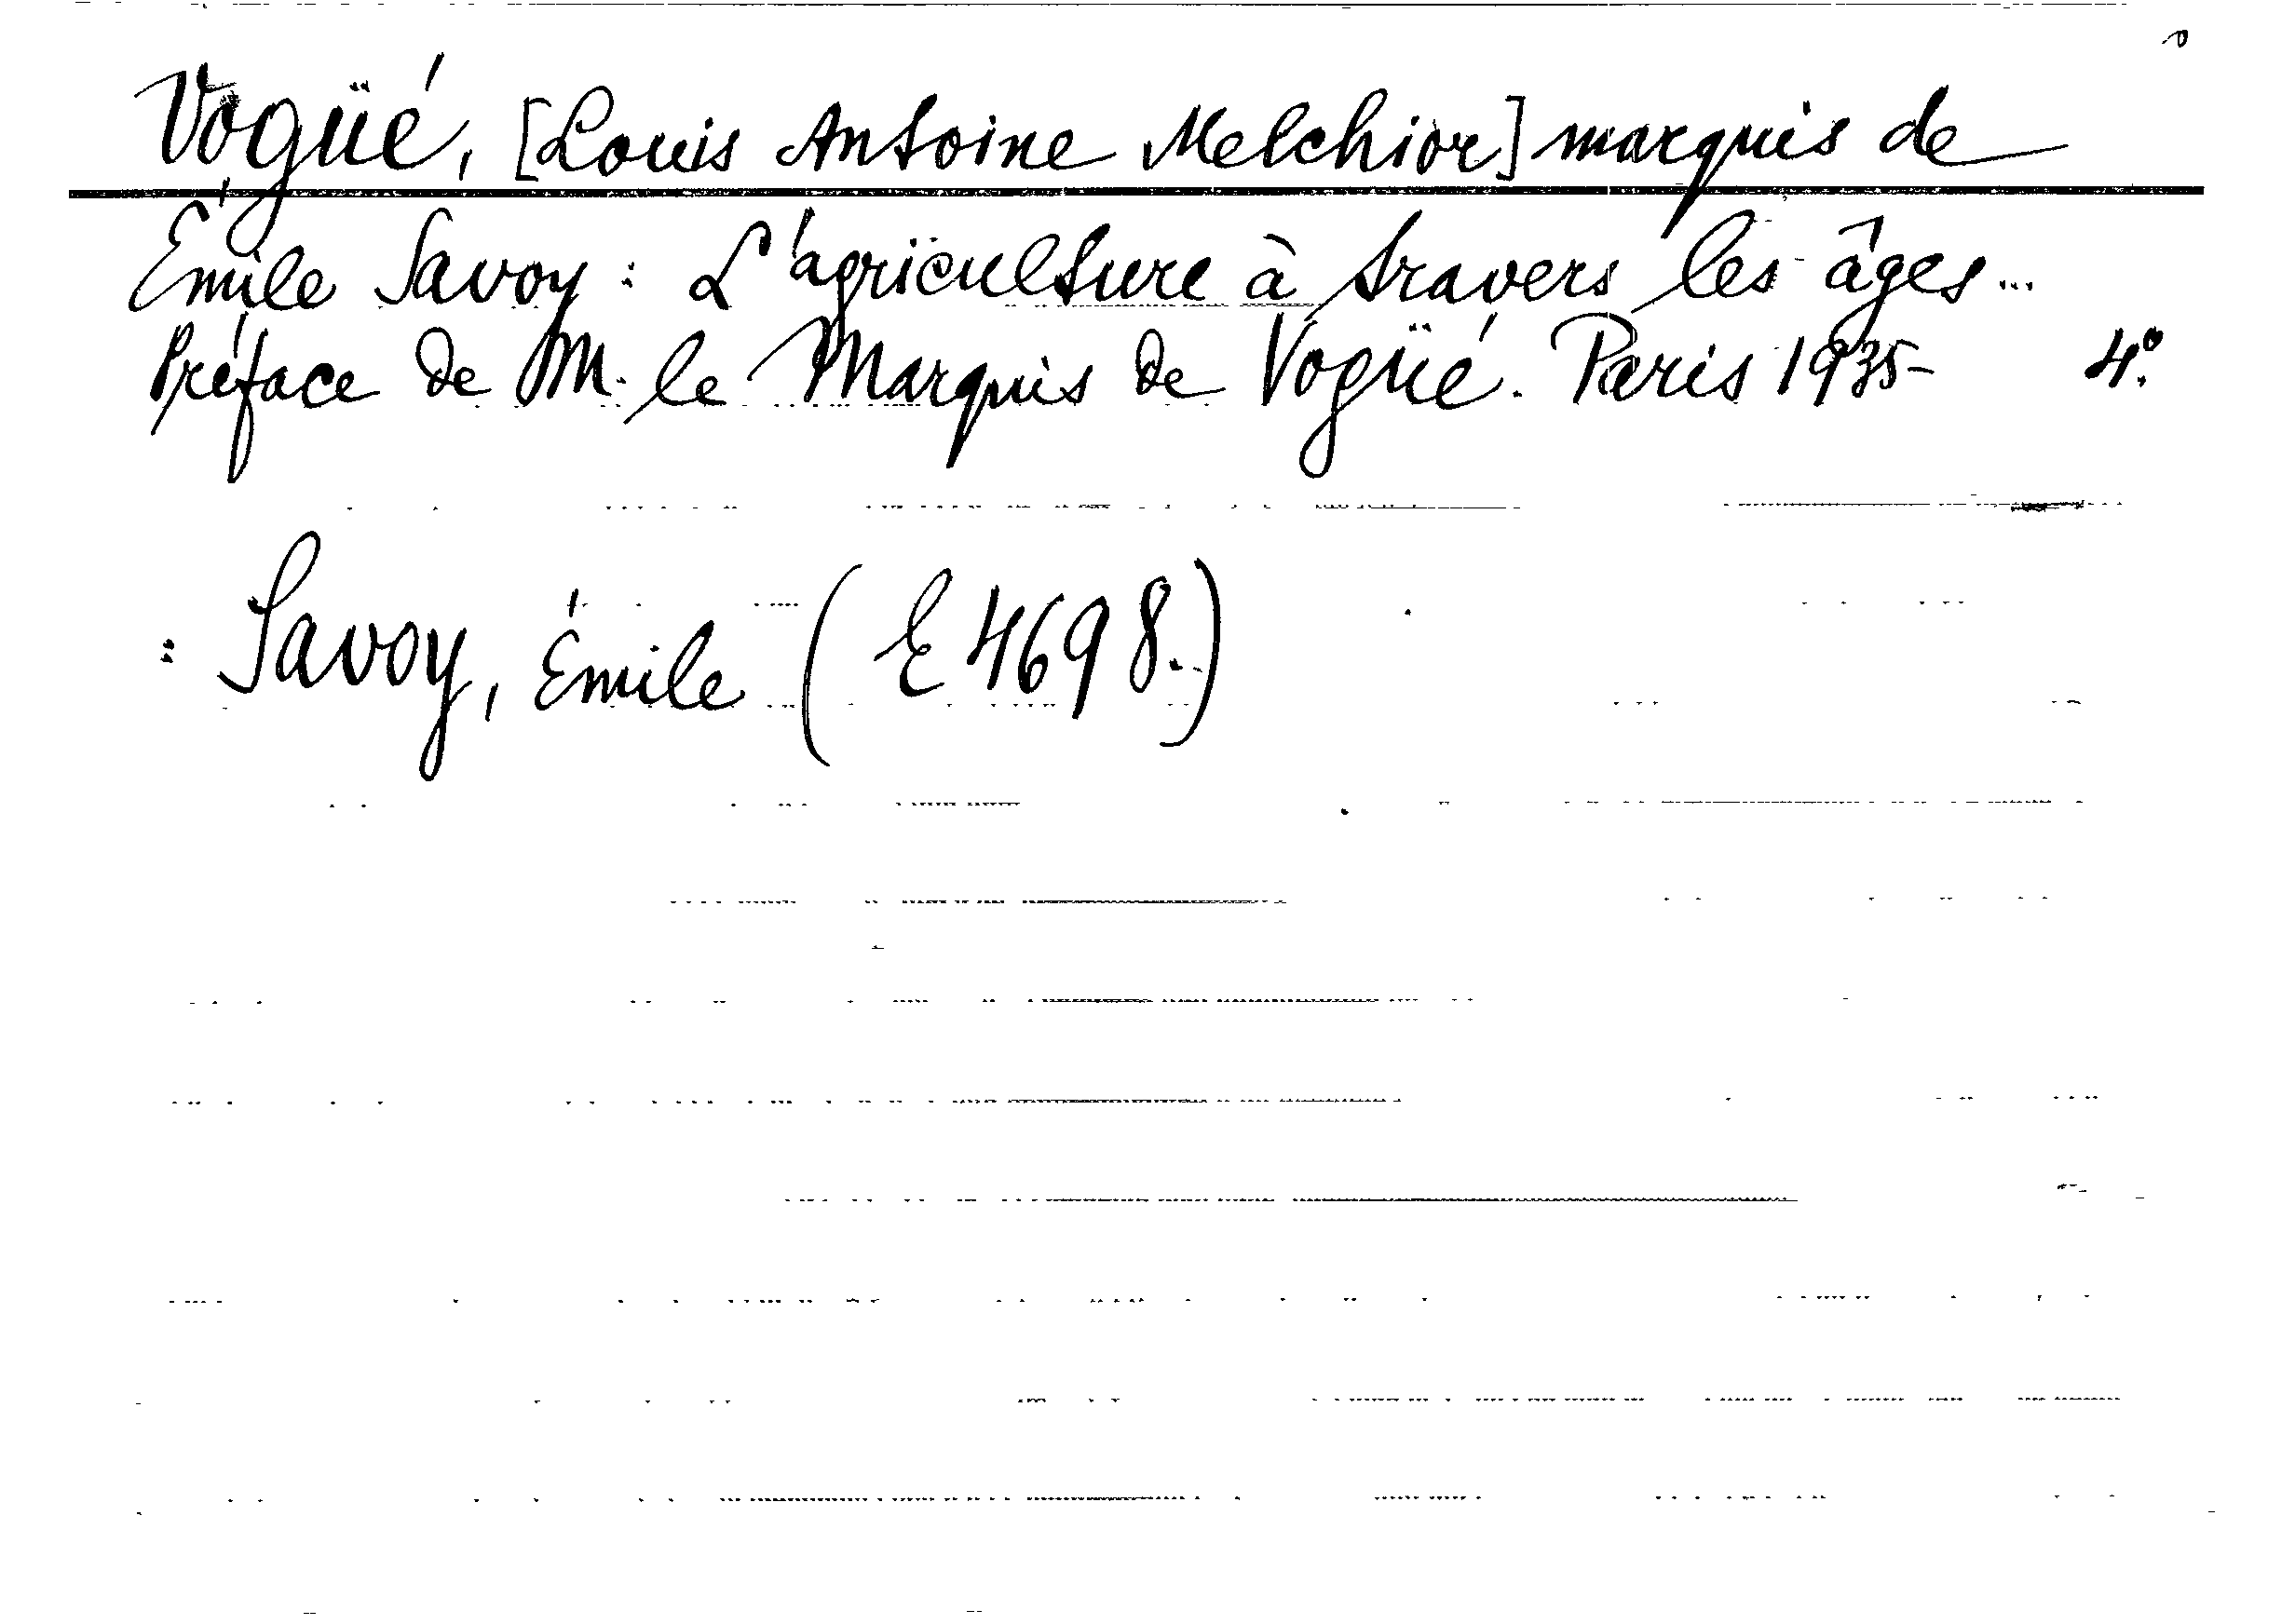 Vogüé, [Louis Antoine Melchior] marquis de
Émile Savoy: L'agriculture à travers les âges...
Préface de M. le Marquis de Vogüé. Paris 1935- 4°.
: Savoy, Émile (E 4698.)